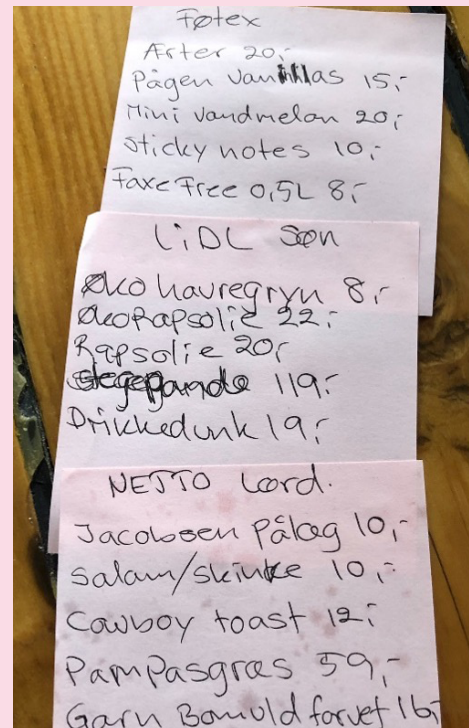 Føtex
Ærter 20,-
Pågen Vanillas 15,-
Mini Vandmelon 20,-
Sticky notes 10,-
Faxe Free 0,5L 8,-
LiDL Søn
Øko havregryn 8,-
Øko Rapsolie 22,-
Rapsolie 20,-
stegepande 119,-
Drikkedunk 19,-
NETTO Lørd.
Jacobsen Pålæg 10,-
Salami/skinke 10,-
Cowboy toast 12,-
Pampasgræs 59,-
Garn Bomuld farvet 16,-